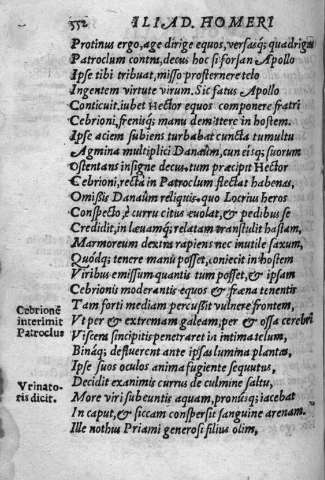 552 ILIAD. HOMERI
Protinus ergo, age dirige equos, versasq; quadrigis
Patroclum contra, decus hoc si forsan Apollo
Ipse tibi tribuat, misso prosternere telo
Ingentem virtute virum. Sic fatus Apollo
Conticuit. iubet Hector equos componere fratri
Cebrioni, frenisq; manu demittere in hostem.
Ipse aciem subiens turbabat cuncta tumultu
Agmina multiplici Danaûm, cunctisq; suorum
Ostentans insigne decus, tum præcipit Hector
Cebrioni, recta in Patroclum flectat habenas,
Omißis Danaûm reliquis. quo Locrius heros
Conspecto, è curru citus euolat, & pedibus se
Credidit, in læuamq; relatam transtulit hastam,
Marmoreum dextra rapiens nec inutile saxum,
Quodq; tenere manu posset, coniecit in hostem
Viribus emissum quantis tum posset, & ipsam
Cebrionis moderantis equos & fræna tenentis
Tam forti mediam percußit vulnere frontem,
Cebrionē interimit Patroclus
Vt per & extremam galeam, per & ossa cerebri
Viscera sincipitis penetraret in intima telum,
Binaq; defluerent ante ipsas lumina plantas,
Ipse suos oculos anima fugiente sequutus,
Vrinatoris dicit.
Decidit exanimis currus de culmine saltu,
More viri subeuntis aquam, pronusq; iacebat
In caput, & siccam conspersit sanguine arenam.
Ille nothus Priami generosi filius olim,